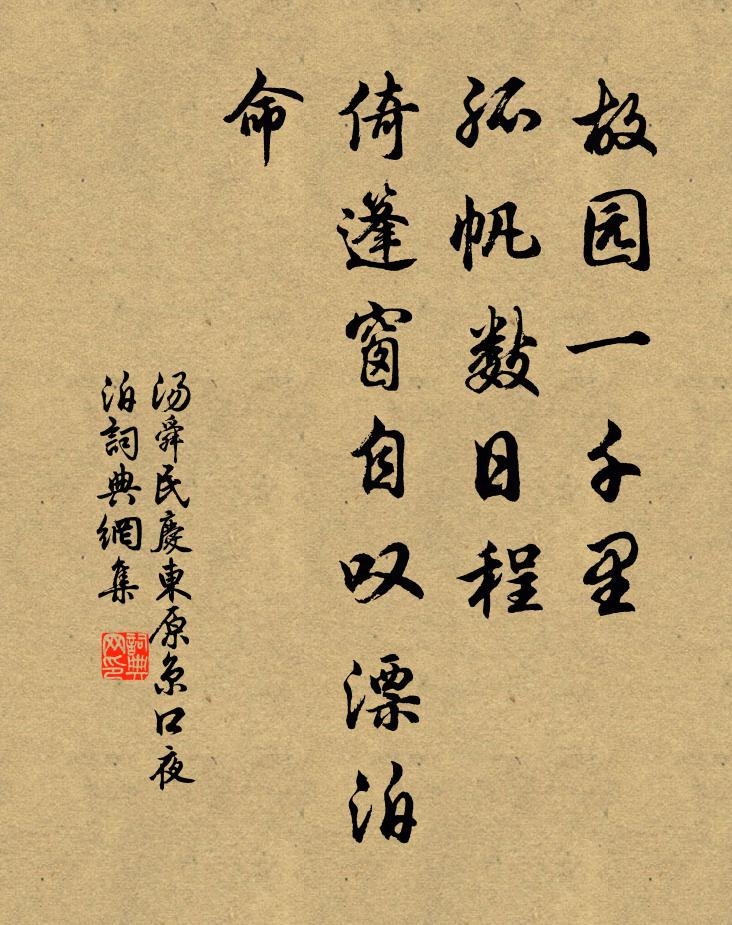 故园一千里
孤帆数日程
倚篷窗自叹漂泊
命
汤舜民慶東原京口夜
泊詞典網集
詞典
网印